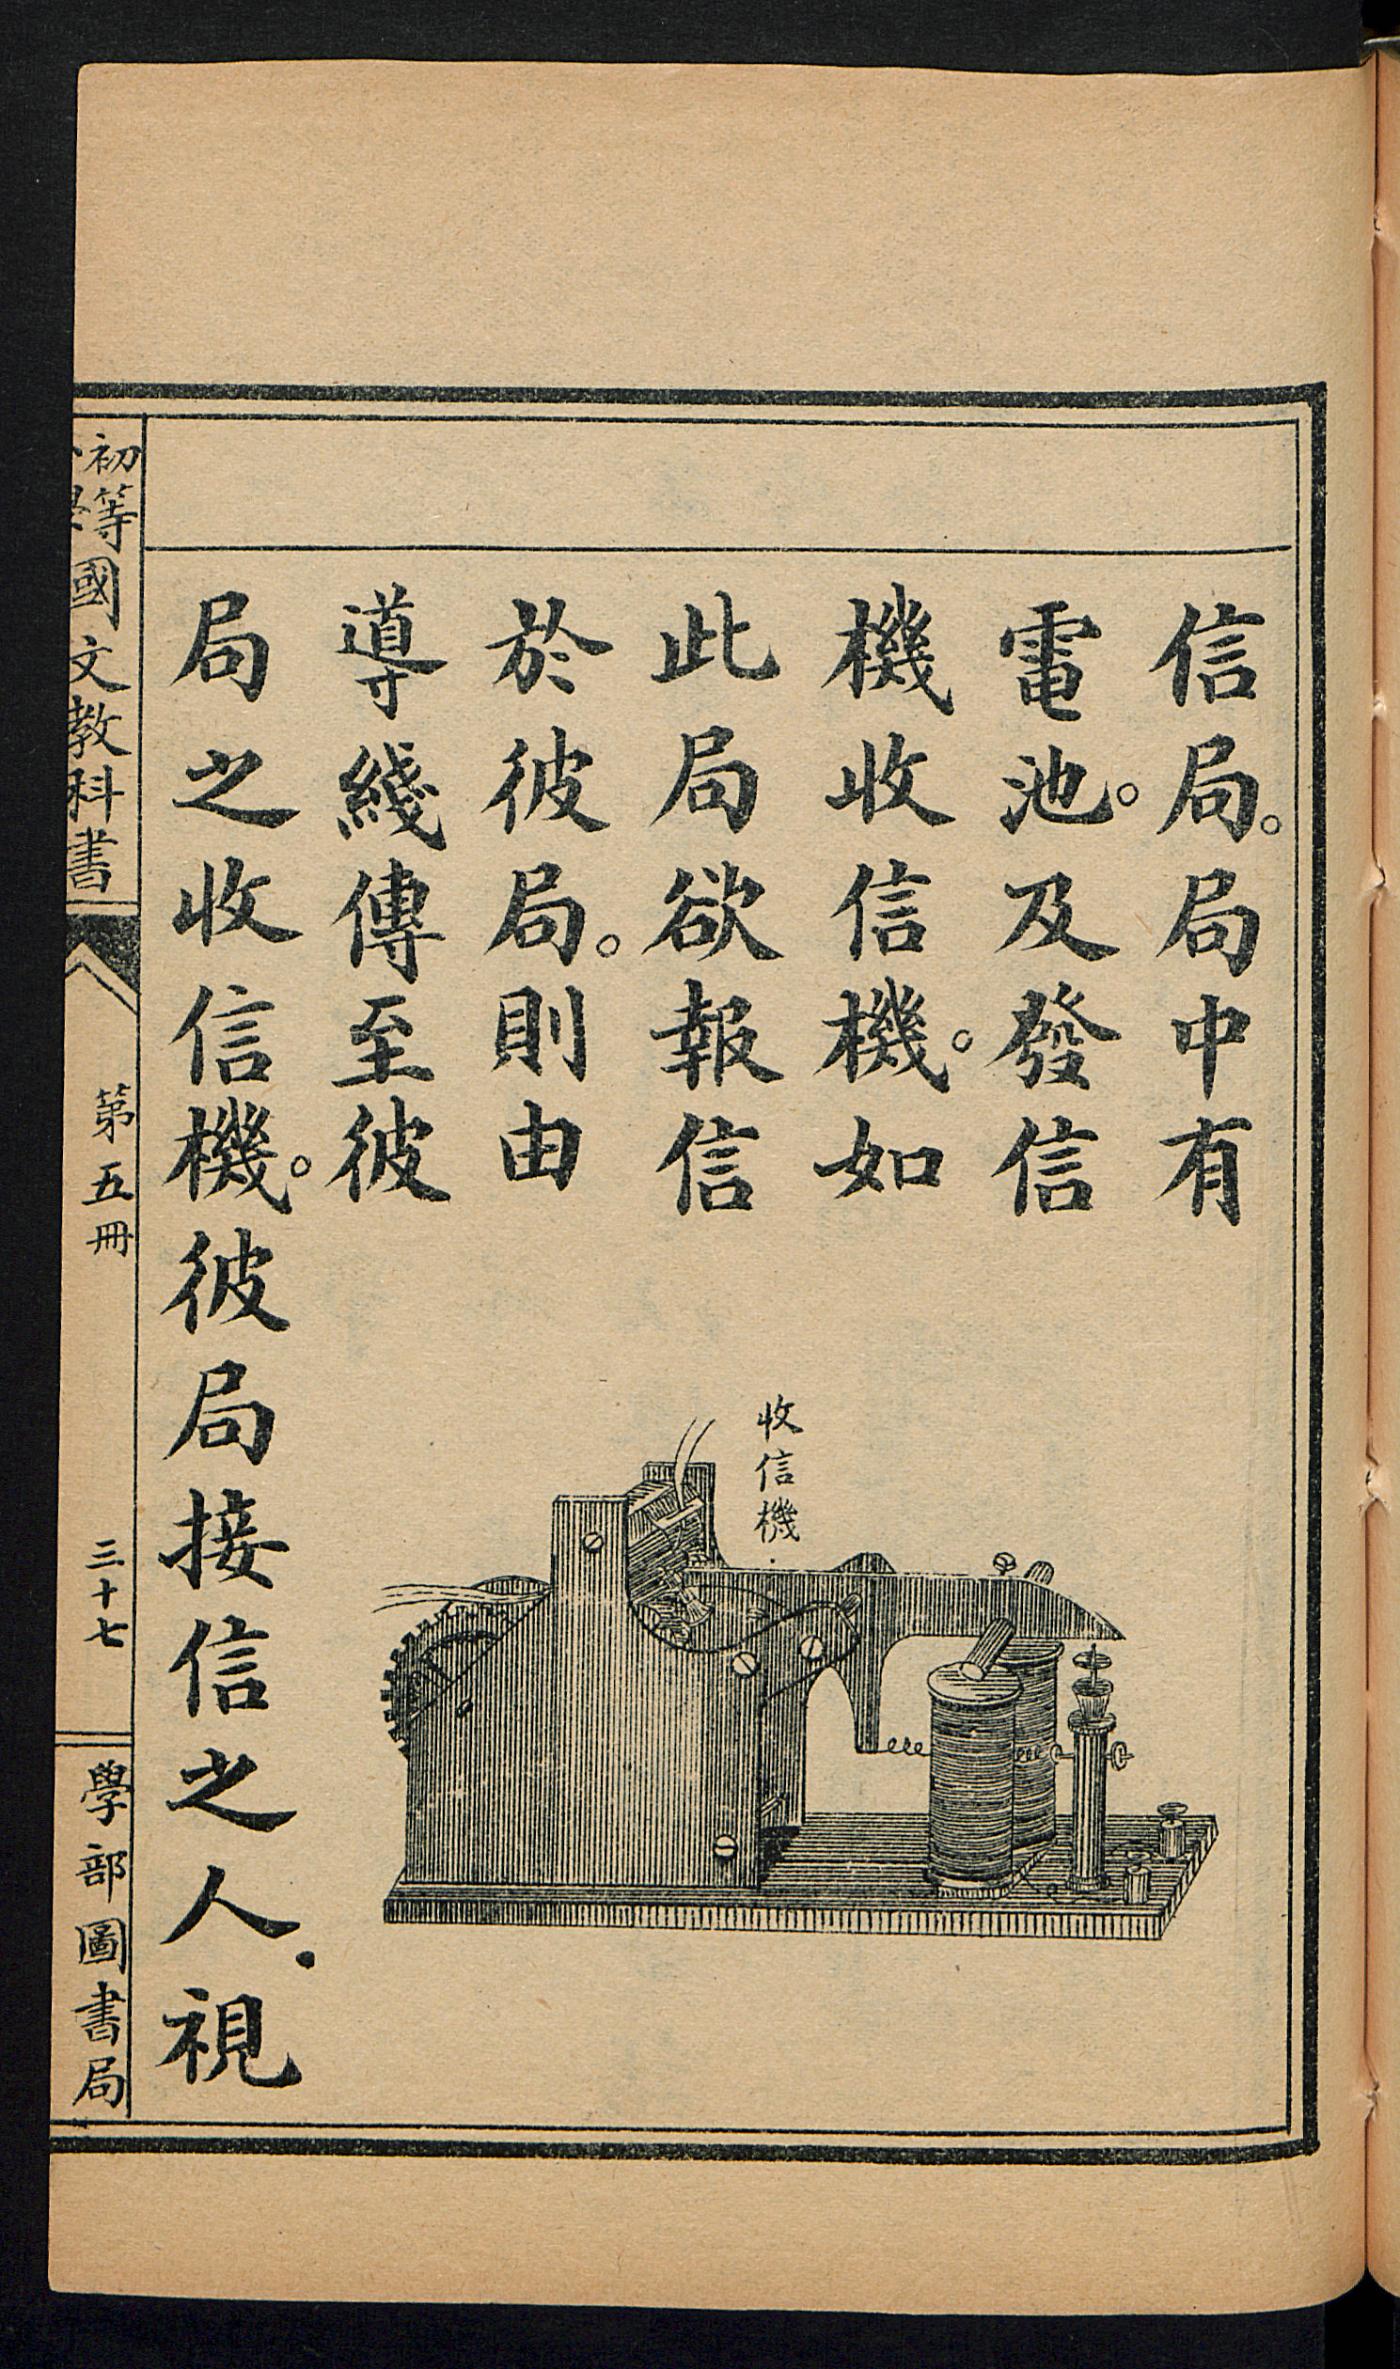 信局。局中有
電池。及發信
機收信機。如
此局欲報信
於彼局。則由
導綫傳至彼
局之收信機。彼局接信之人．視
收信機
初等
國文教科書
第五冊
三十七
學部圖書局